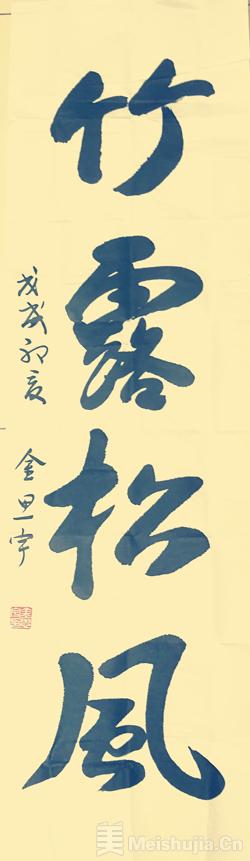 竹露松風
戊戌初夏 金思宇
美 Meishujia.Cn